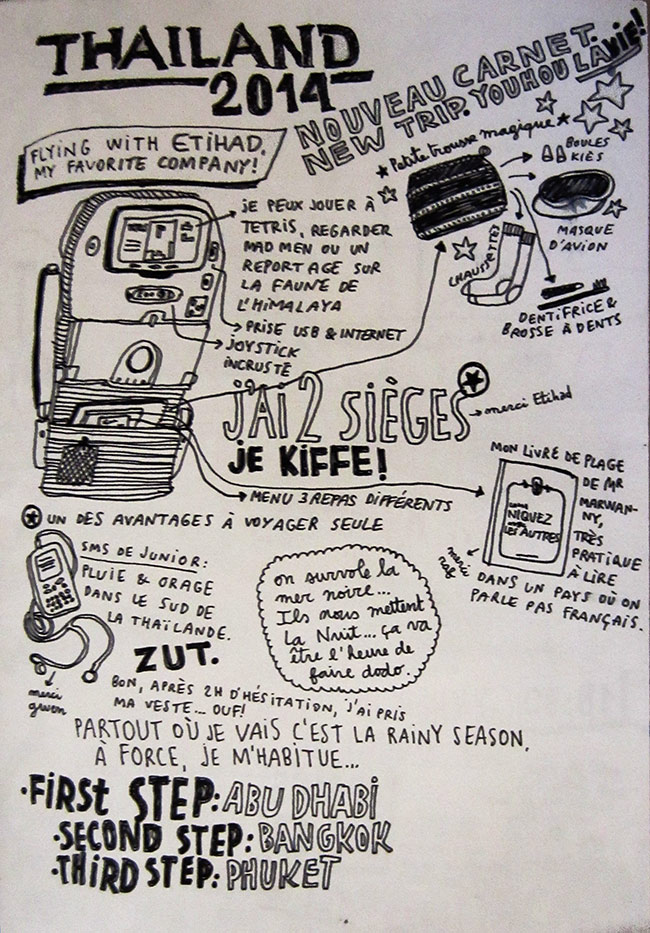 THAILAND
2014
NOUVEAU CARNET.
NEW TRIP. YOUHOU LA VIE!
FLYING WITH ETIHAD,
MY FAVORITE COMPANY!
Petite trousse magique
BOULES
KIÈS
MASQUE
D'AVION
CHAUSSETTES
DENTIFRICE &
BROSSE À DENTS
JE PEUX JOUER À
TETRIS, REGARDER
MAD MEN OU UN
REPORTAGE SUR
LA FAUNE DE
L'HIMALAYA
PRISE USB & INTERNET
JOYSTICK
INCRUSTÉ
J'AI 2 SIÈGES
merci Etihad
JE KIFFE!
MENU 3 REPAS DIFFÉRENTS
UN DES AVANTAGES À VOYAGER SEULE
MON LIVRE DE PLAGE
DE MR
MARWAN-
NY,
TRÈS
PRATIQUE
À LIRE
DANS UN PAYS OÙ ON
PARLE PAS FRANÇAIS.
NIQUEZ
LES AUTRES
merci
SMS DE JUNIOR:
PLUIE & ORAGE
DANS LE SUD DE
LA THAÏLANDE.
ZUT.
merci
gwen
on survole la
mer noire...
Ils nous mettent
la Nuit... ça va
être l'heure de
faire dodo.
BON, APRÈS 2H D'HÉSITATION, J'AI PRIS
MA VESTE... OUF!
PARTOUT OÙ JE VAIS C'EST LA RAINY SEASON,
À FORCE, JE M'HABITUE...
·FIRST STEP: ABU DHABI
·SECOND STEP: BANGKOK
·THIRD STEP: PHUKET